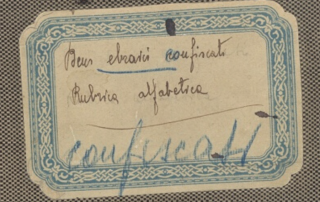 Beni ebraici confiscati
Rubrica alfabetica
confiscati